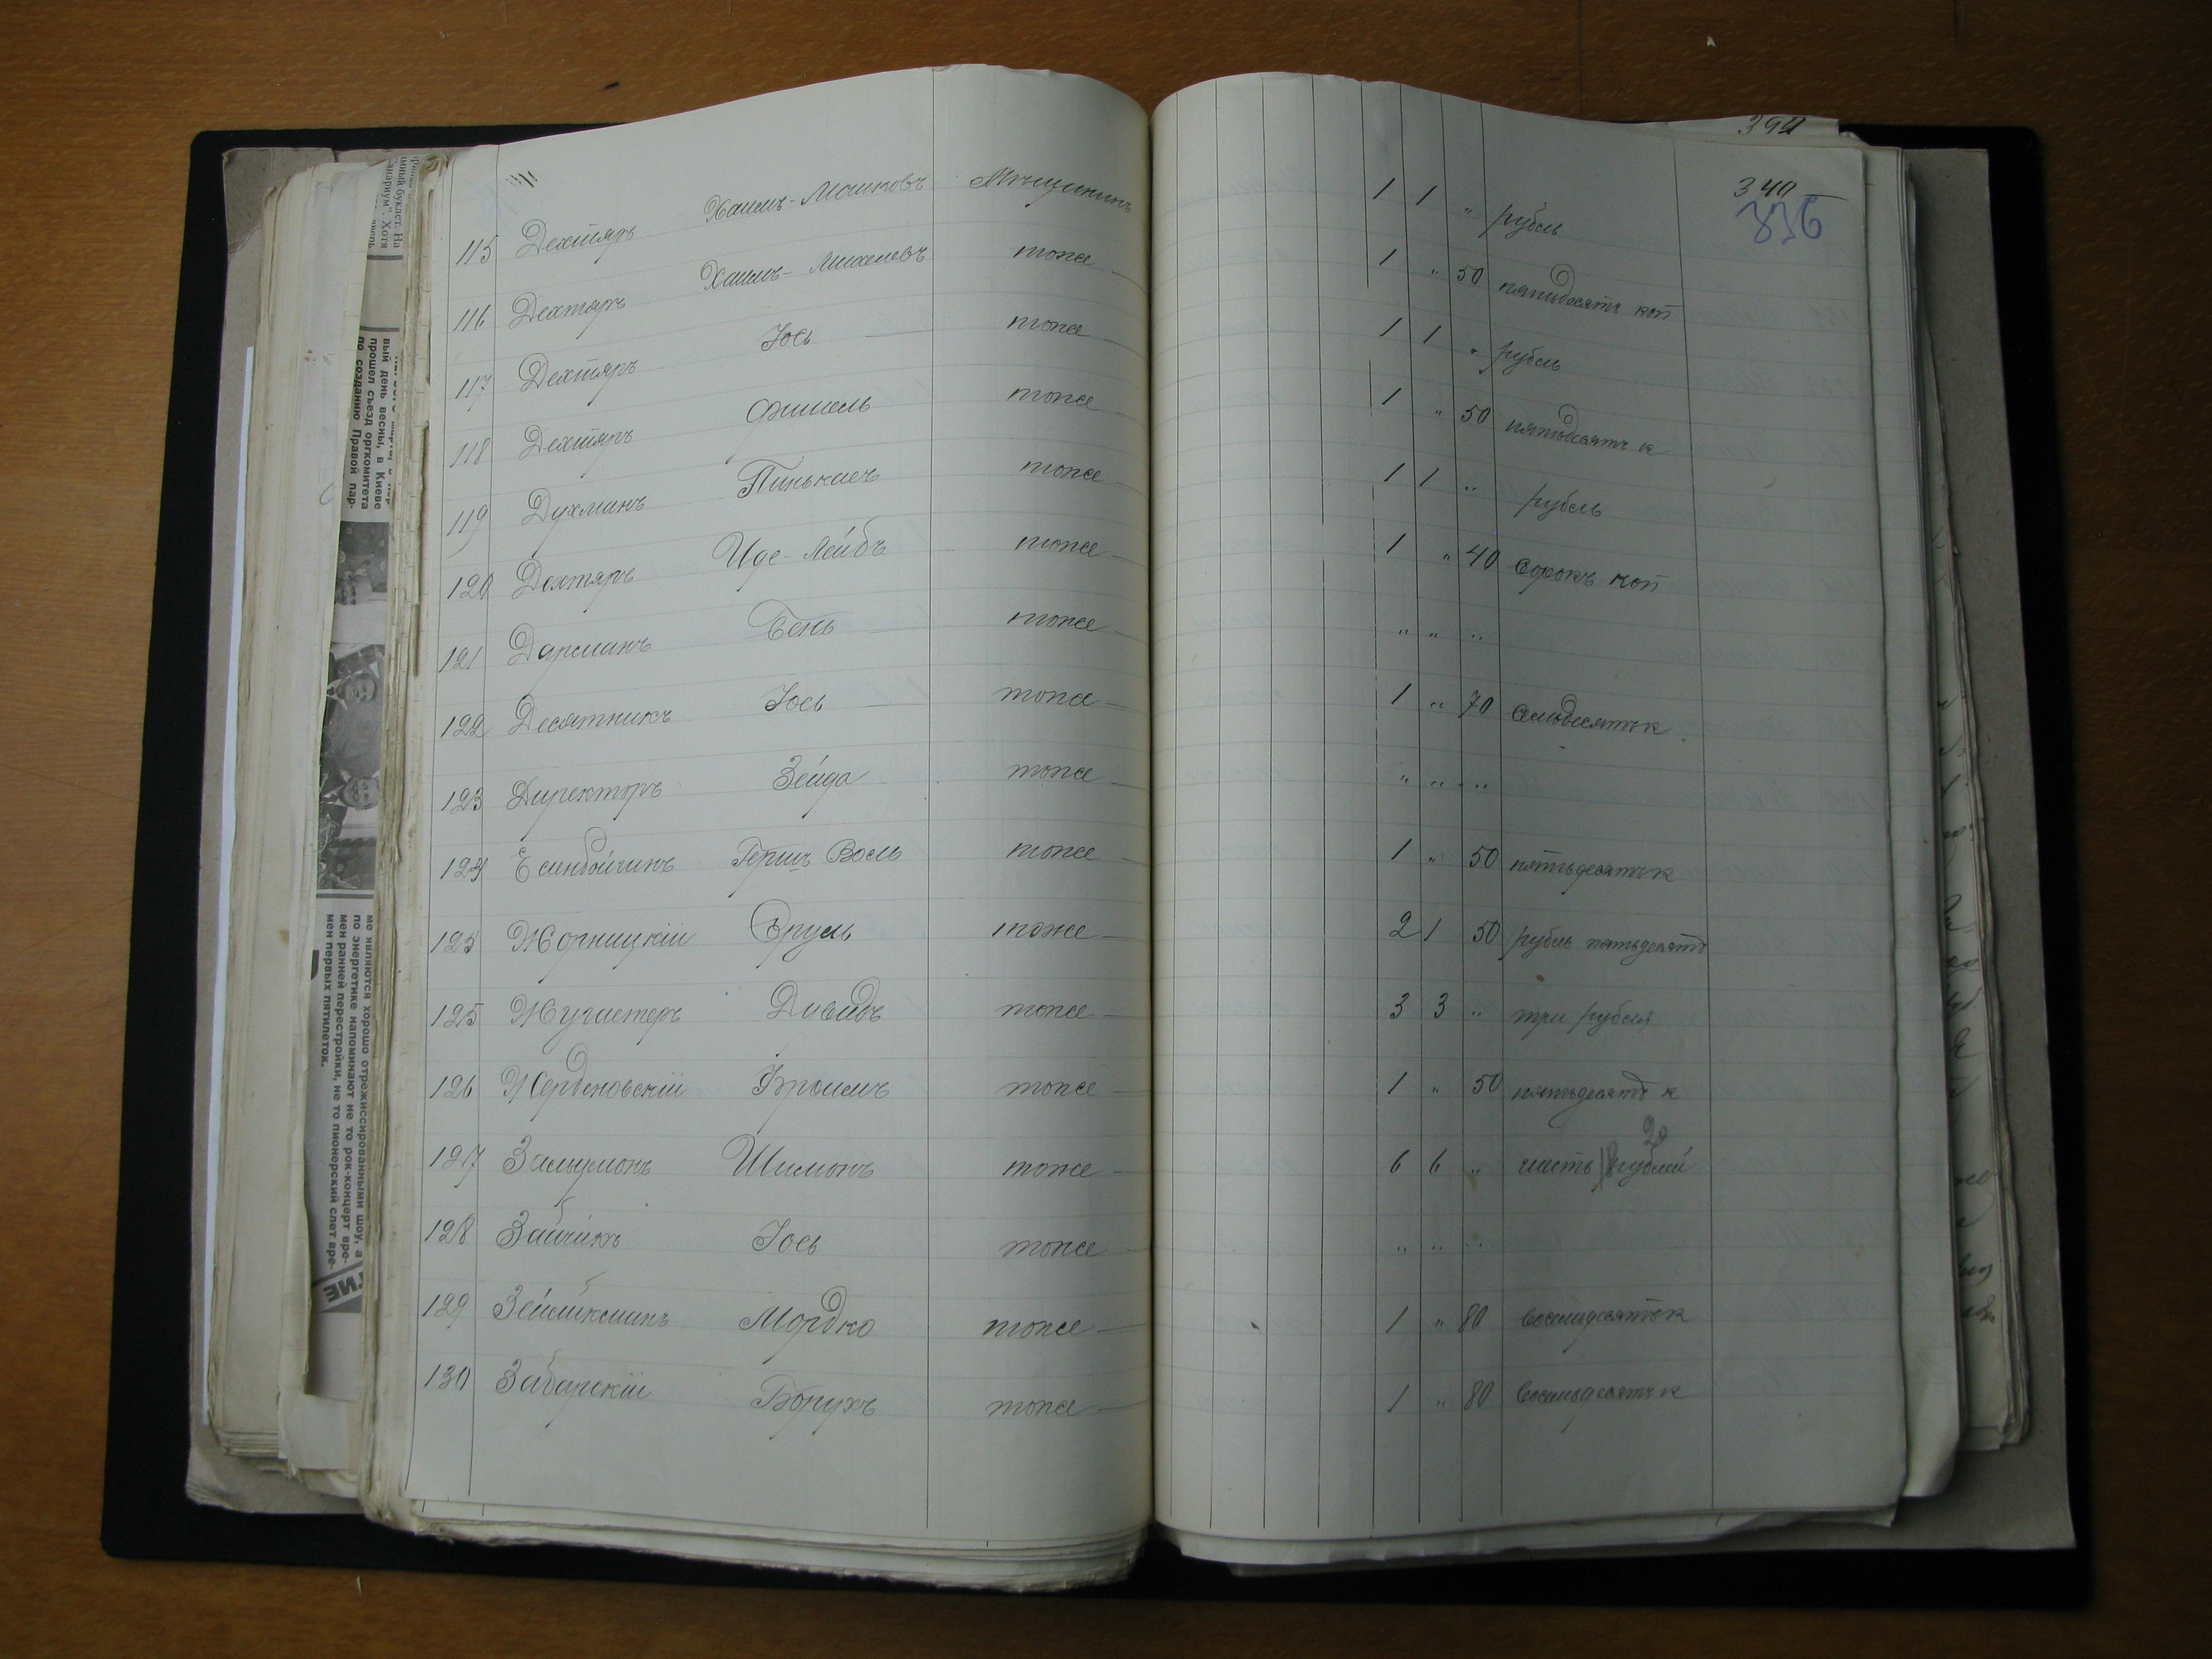 394
340
336
115 Дехтяръ Хаимъ-Мошковъ Мѣщанинъ 1 1 " рубль
116 Дехтяръ Хаимъ-Михелевъ тоже 1 " 50 пятьдесятъ коп
117 Дехтяръ Іось тоже 1 1 " рубль
118 Дехтяръ Фишель тоже 1 " 50 пятьдесятъ к
119 Духманъ Пинькасъ тоже 1 1 " рубль
120 Дехтяръ Иде-Лейбъ тоже 1 " 40 сорокъ коп
121 Дарманъ Бень тоже " " "
122 Десятникъ Іось тоже 1 " 70 семьдесятъ к
123 Директоръ Зейда тоже " " "
124 Гершъ тоже 1 " 50 пятьдесятъ к
125 Жорницкій Сруль тоже 2 1 50 рубль пятьдесятъ
125 Давидъ тоже 3 3 " три рубля
126 Жерденовскій Фроимъ тоже 1 " 50 пятьдесятъ к
20
127 Зальцманъ Шимонъ тоже 6 6 " шесть рублей
128 Зайчикъ Іось тоже " " "
129 Мордко тоже 1 " 80 восемьдесятъ к
130 Забарскій Борухъ тоже 1 " 80 восемьдесятъ к
вый день весны, в Киеве
прошел съезд оргкомитета
по созданию Правой пар-
ме являются хорошо отрежиссированными шоу, а
по энергетике напоминают не то рок-концерт вре-
мен ранней перестройки, не то пионерский слет вре-
мен первых пятилеток.